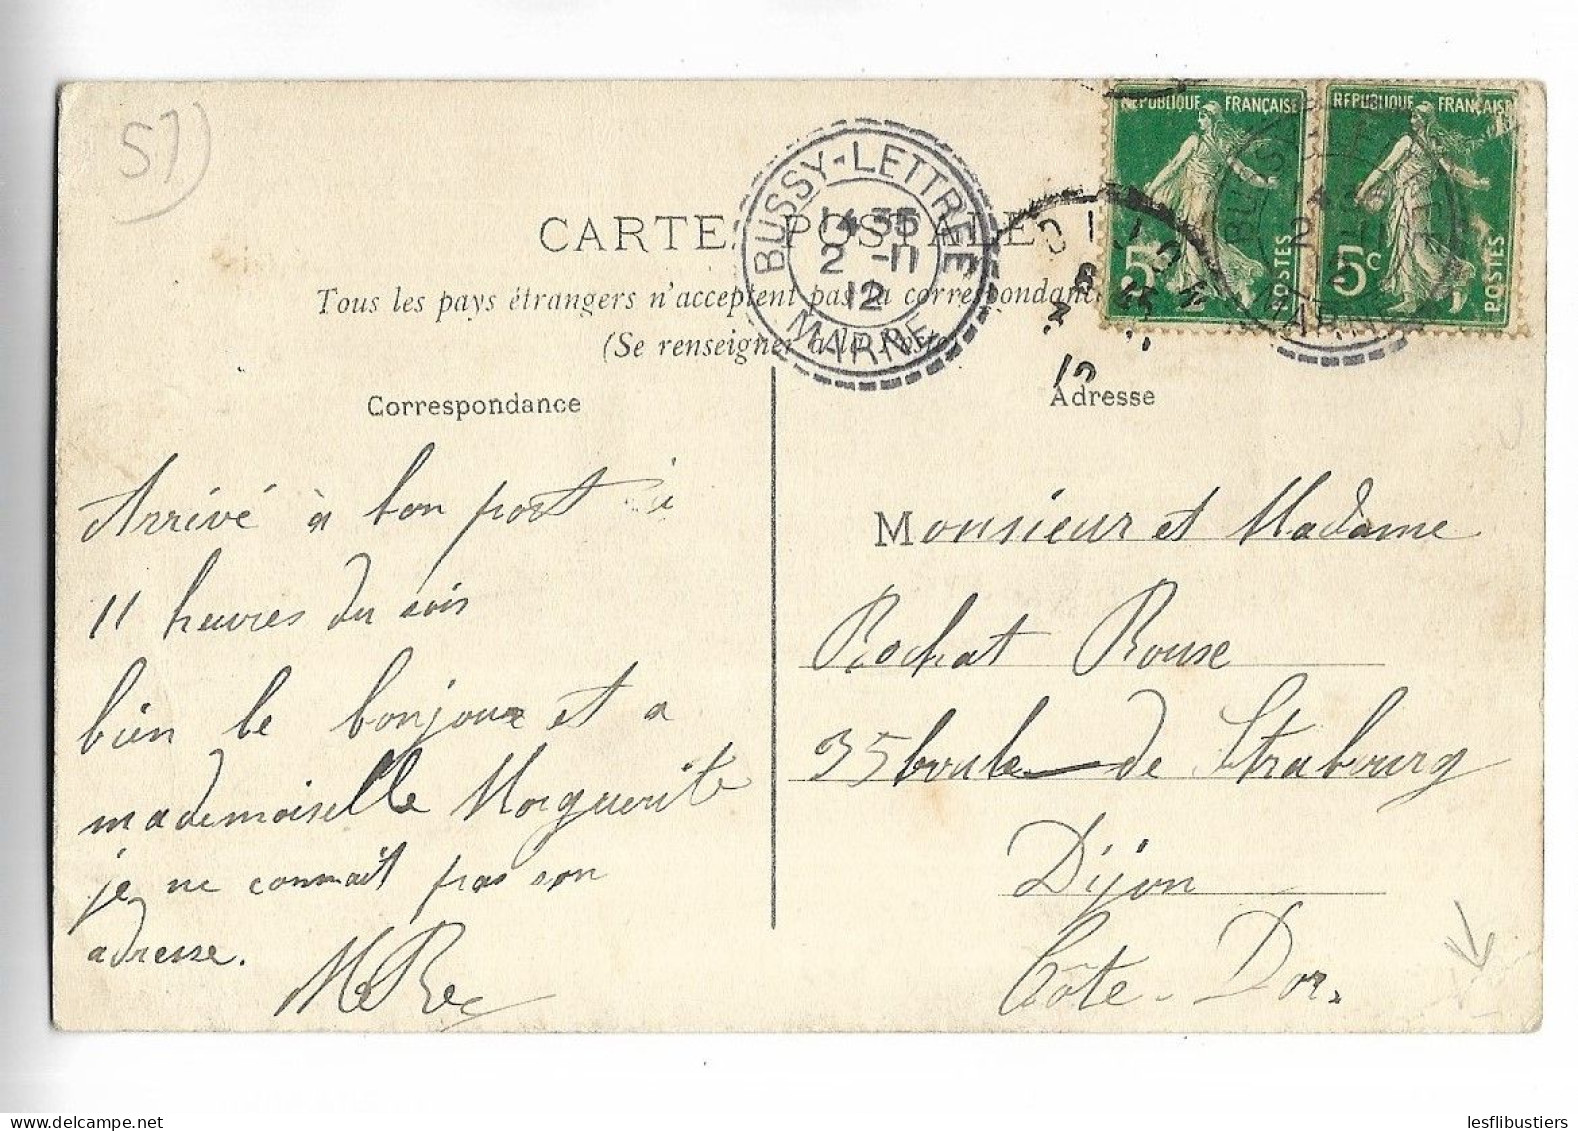 51)
REPUBLIQUE FRANÇAISE
5c POSTES
REPUBLIQUE FRANÇAISE
5c POSTES
BUSSY-LETTRÉE
14 35
2 -11
12
MARNE
DIJON
CARTE POSTALE
Tous les pays étrangers n'acceptent pas la correspondance
(Se renseigner à la Poste)
Correspondance
Arrivé à bon port à
11 heures du soir
bien le bonjour et a
mademoiselle Morguerite
je ne connait pas son
adresse.
Adresse
Monsieur et Madame
Rochat Rouse
35 boule de Strabourg
Dijon
Côte-Dor.
lesflibustiers